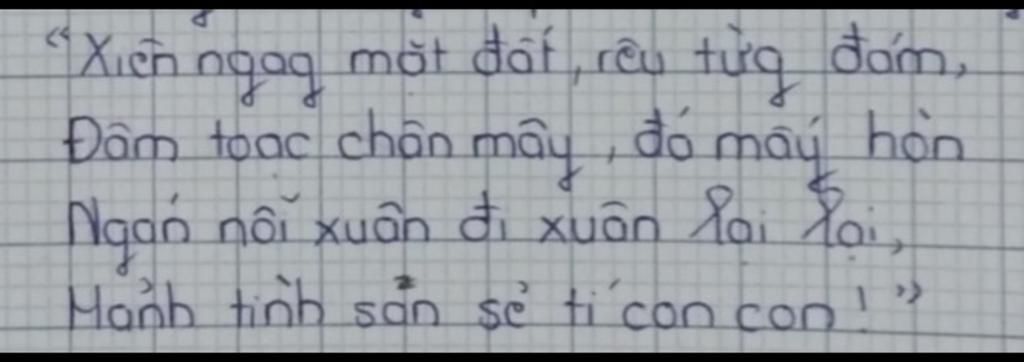 “Xiên ngag mặt đất, rêu từg đám,
Đâm toạc chân mây, đó mấy hòn
Ngán nỗi xuân đi xuân lại lại,
Mảnh tình sản sẻ tí con con!”